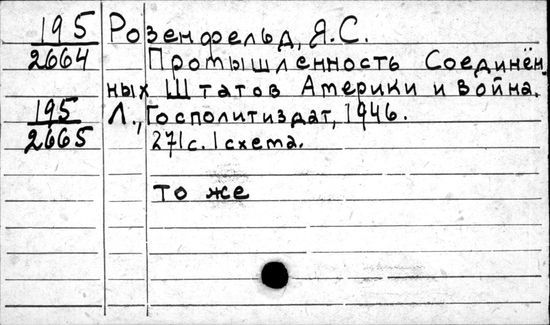 195 Розенфельд, Я.С.
2664 Промышленность Соединён-
ных Штатов Америки и война.
195 Л., Госполитиздат, 1946.
2665 271с. 1 схема.
то же